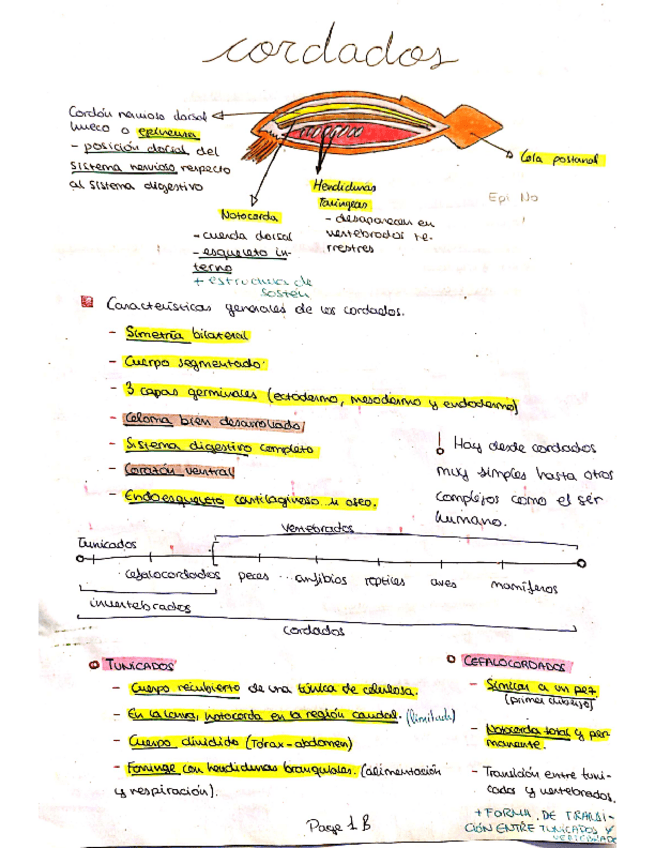 cordados
Cordón nervioso dorsal
hueco o epineuria
- posición dorsal del
sistema nervioso respecto
al sistema digestivo
Cola postanal
Hendiduras
faríngeas
- desaparecen en
vertebrados te-
rrestres
Epi No
Notocorda
- cuerda dorsal
- esqueleto in-
terno
+ estructura de
sostén
Características generales de los cordados.
- Simetría bilateral
- Cuerpo segmentado.
- 3 capas germinales (ectodermo, mesodermo y endodermo)
- Celoma bien desarrollado
- Sistema digestivo completo
- Corazón ventral
- Endoesqueleto cartilaginoso u oseo.
! Hay desde cordados
muy simples hasta otros
complejos como el ser
humano.
Vertebrados
Tunicados
cefalocordados peces anfibios reptiles aves mamíferos
invertebrados
cordados
TUNICADOS
- Cuerpo recubierto de una túnica de celulosa.
- En la larva, notocorda en la región caudal. (limitada)
- Cuerpo dividido (Tórax-abdomen)
- Faringe con hendiduras branquiales. (alimentación
y respiración).
CEFALOCORDADOS
- Similar a un pez.
(primer dibujo)
- Notocorda total y per
manente.
- Transición entre tuni-
cados y vertebrados.
+ FORMA DE TRANSI-
CIÓN ENTRE TUNICADOS Y
VERTEBRADO
Page 1 B